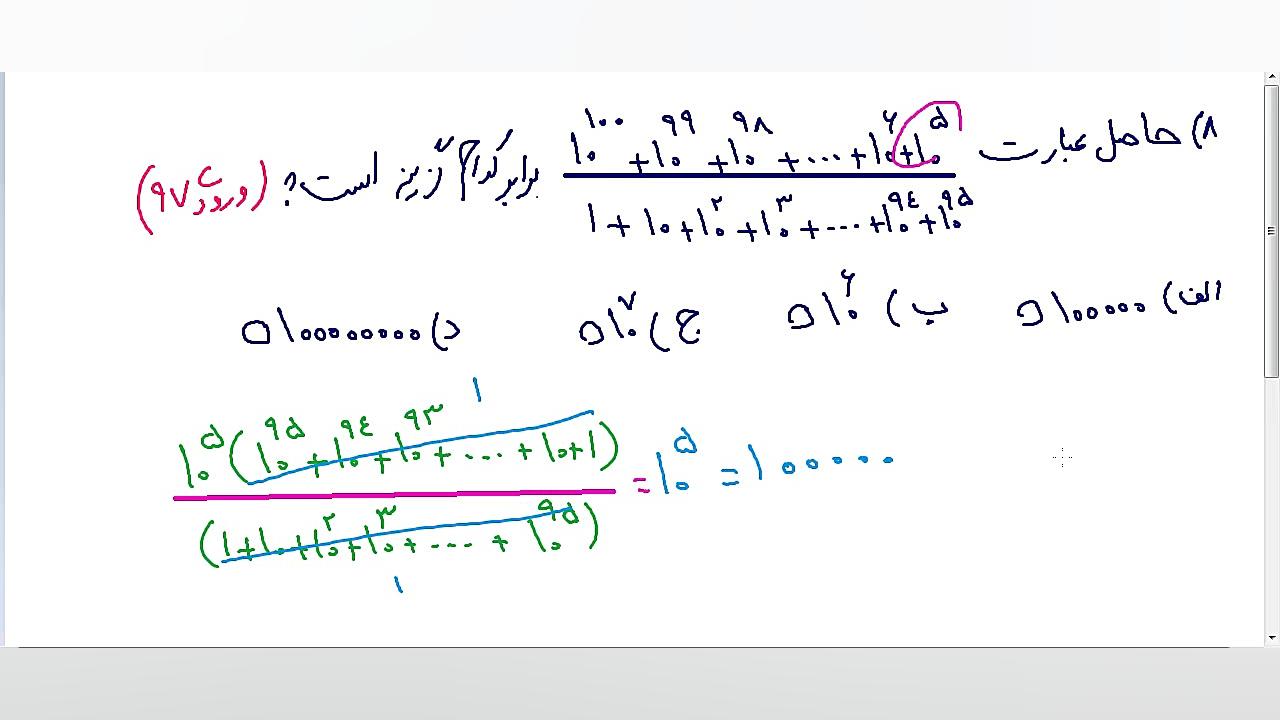 ۸) حاصل عبارت (۱۰^۱۰۰ + ۱۰^۹۹ + ۱۰^۹۸ + ... + ۱۰^۶ + ۱۰^۵) / (۱ + ۱۰ + ۱۰^۲ + ۱۰^۳ + ... + ۱۰^۹۴ + ۱۰^۹۵) برابر کدام گزینه است؟ (ورودی ۹۷)
الف) ۱۰۰۰۰۰ ب) ۱۰^۶ ج) ۱۰^۷ د) ۱۰۰۰۰۰۰۰۰
۱
۱۰^۵(۱۰^۹۵ + ۱۰^۹۴ + ۱۰^۹۳ + ... + ۱۰ + ۱) / (۱ + ۱۰ + ۱۰^۲ + ۱۰^۳ + ... + ۱۰^۹۵) = ۱۰^۵ = ۱۰۰۰۰۰
۱